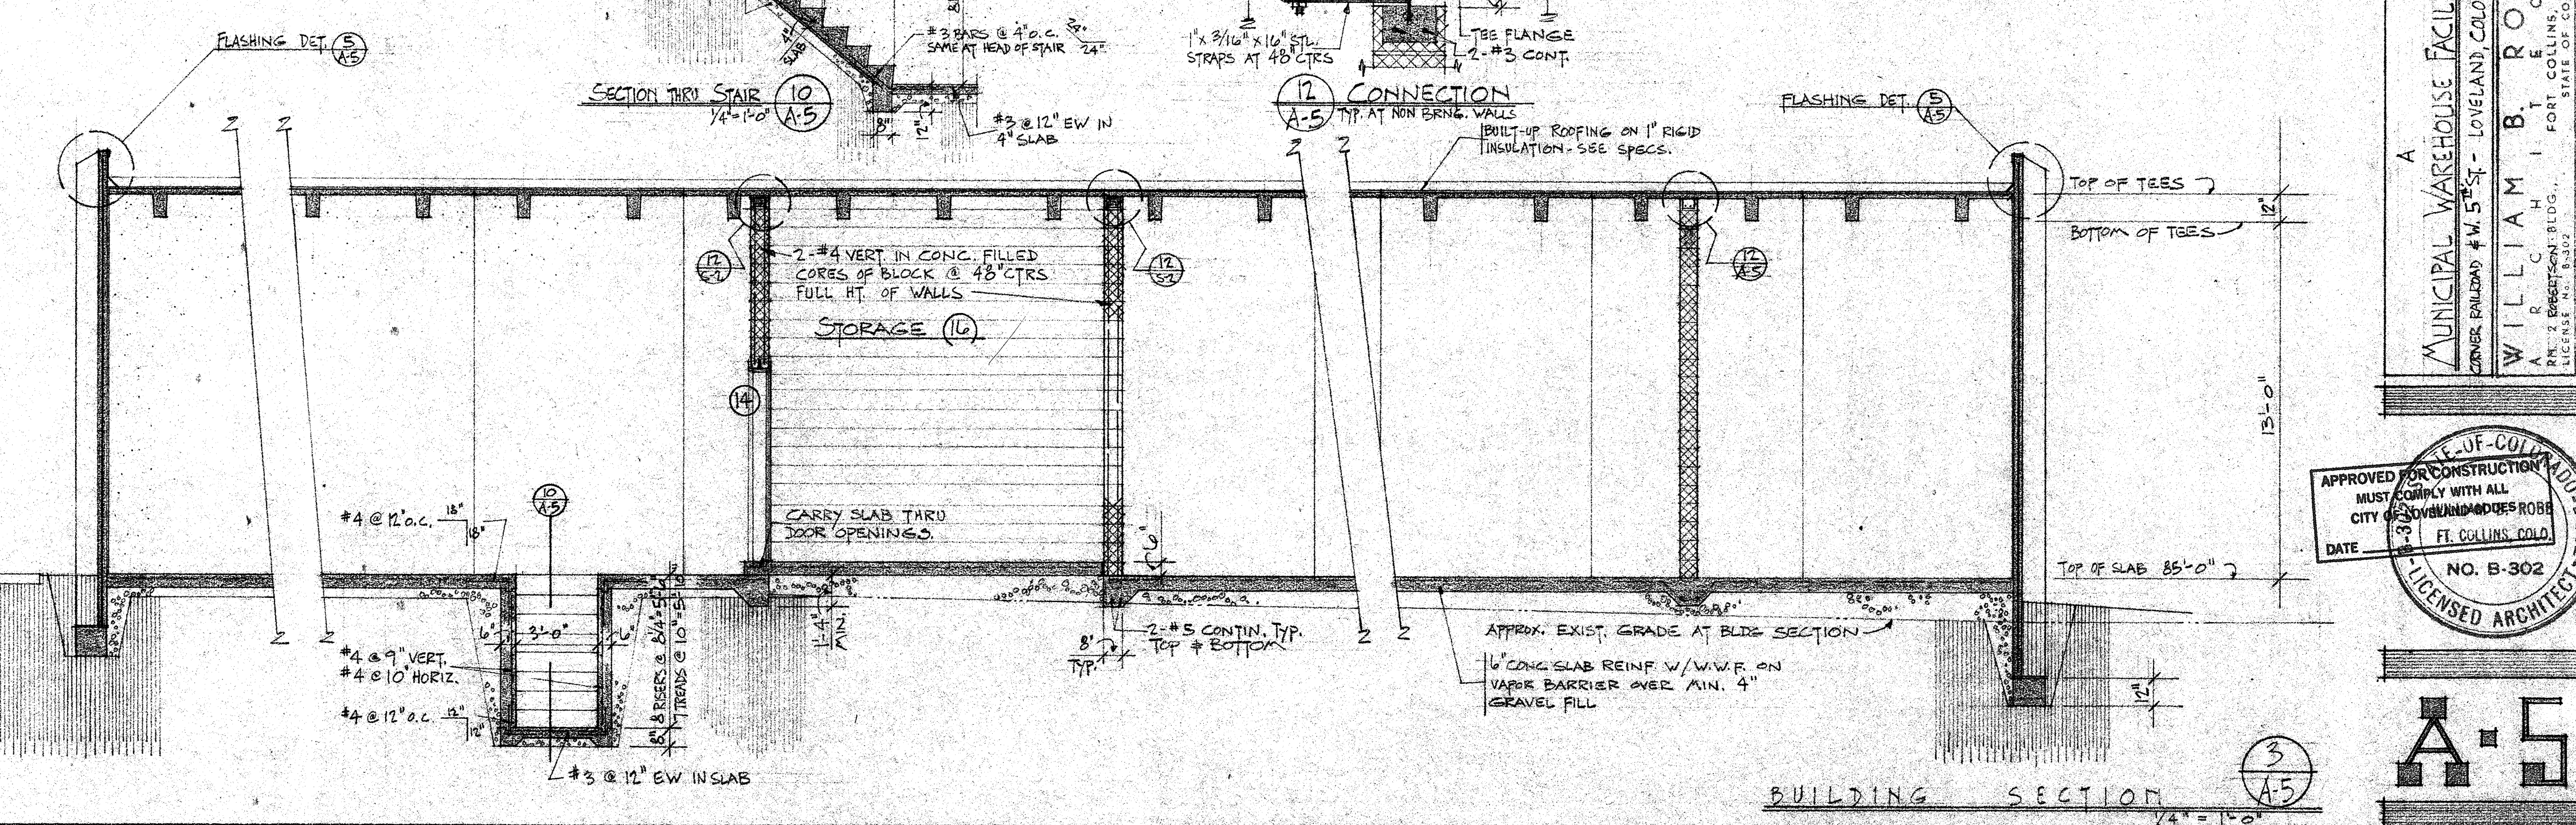 FLASHING DET. 5
A-5
4"
SLAB
#3 BARS @ 4" O.C.
SAME AT HEAD OF STAIR
24"
SECTION THRU STAIR
1/4"=1'-0"
10
A-5
8"
12"
#3 @ 12" EW IN
4" SLAB
1" x 3/16" x 16" STL.
STRAPS AT 48" CTRS
TEE FLANGE
2-#3 CONT.
12
A-5
CONNECTION
TYP. AT NON BRNG. WALLS
BUILT-UP ROOFING ON 1" RIGID
INSULATION - SEE SPECS.
FLASHING DET. 5
A-5
TOP OF TEES
12"
BOTTOM OF TEES
12
S-2
2-#4 VERT. IN CONC. FILLED
CORES OF BLOCK @ 48" CTRS
FULL HT. OF WALLS
12
S-2
12
A-5
STORAGE 16
14
13'-0"
10
A-5
#4 @ 12" O.C. 18"
18"
CARRY SLAB THRU
DOOR OPENINGS.
6"
TOP OF SLAB 85'-0"
6" 3'-0" 6"
#4 @ 9" VERT.
#4 @ 10" HORIZ.
#4 @ 12" O.C. 12"
12"
8"
8 RISERS @ 8 1/4"
7 TREADS @ 10" = 5'-10"
1'-4"
MIN.
8"
TYP.
2-#5 CONTIN. TYP.
TOP & BOTTOM
APPROX. EXIST. GRADE AT BLDG SECTION
6" CONC SLAB REINF. W/W.W.F. ON
VAPOR BARRIER OVER MIN. 4"
GRAVEL FILL
12"
#3 @ 12" EW IN SLAB
BUILDING SECTION
1/4" = 1'-0"
3
A-5
A
MUNICIPAL WAREHOUSE FACIL
CORNER RAILROAD & W. 5TH ST. - LOVELAND, COLO
WILLIAM B. RO
ARCHITECT
RM. 2 ROBERTSON BLDG., FORT COLLINS,
LICENSE No. B-302 STATE OF CO
APPROVED FOR CONSTRUCTION
MUST COMPLY WITH ALL
CITY OF LOVELAND CODES
DATE
ROBE
FT. COLLINS, COLO.
NO. B-302
LICENSED ARCHITECT
A-5